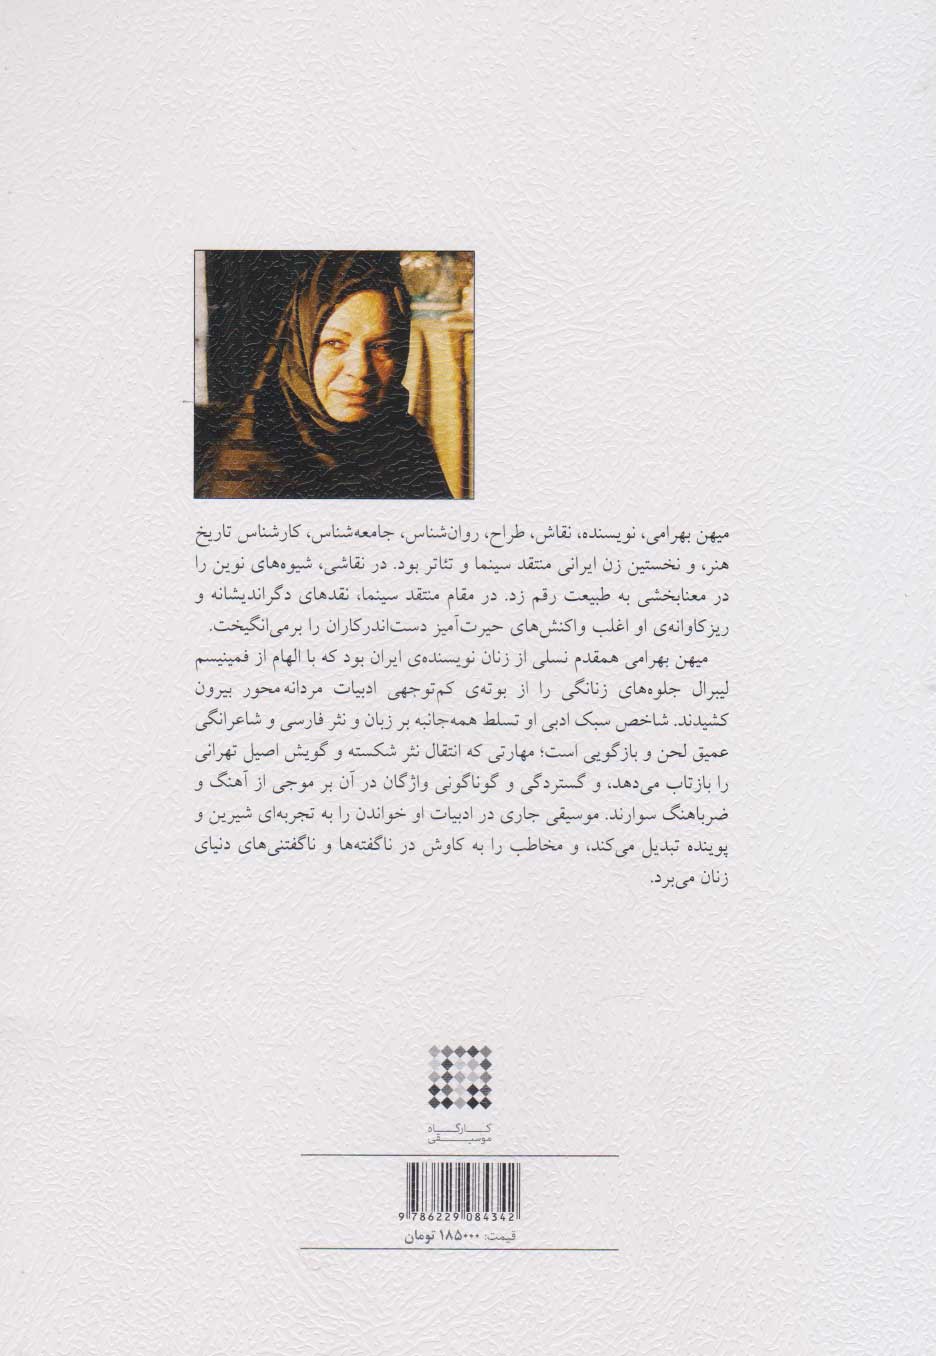 میهن بهرامی، نویسنده، نقاش، طراح، روان‌شناس، جامعه‌شناس، کارشناس تاریخ
هنر، و نخستین زن ایرانی منتقد سینما و تئاتر بود. در نقاشی، شیوه‌های نوین را
در معنابخشی به طبیعت رقم زد. در مقام منتقد سینما، نقدهای دگراندیشانه و
ریزکاوانه‌ی او اغلب واکنش‌های حیرت‌آمیز دست‌اندرکاران را برمی‌انگیخت.
میهن بهرامی همقدم نسلی از زنان نویسنده‌ی ایران بود که با الهام از فمینیسم
لیبرال جلوه‌های زنانگی را از بوته‌ی کم‌توجهی ادبیات مردانه‌محور بیرون
کشیدند. شاخص سبک ادبی او تسلط همه‌جانبه بر زبان و نثر فارسی و شاعرانگی
عمیق لحن و بازگویی است؛ مهارتی که انتقال نثر شکسته و گویش اصیل تهرانی
را بازتاب می‌دهد، و گستردگی و گوناگونی واژگان در آن بر موجی از آهنگ و
ضرباهنگ سوارند. موسیقی جاری در ادبیات او خواندن را به تجربه‌ای شیرین و
پوینده تبدیل می‌کند، و مخاطب را به کاوش در ناگفته‌ها و ناگفتنی‌های دنیای
زنان می‌برد.
کارگاه
موسیقی
9 786229 084342
قیمت: ۱۸۵۰۰۰ تومان